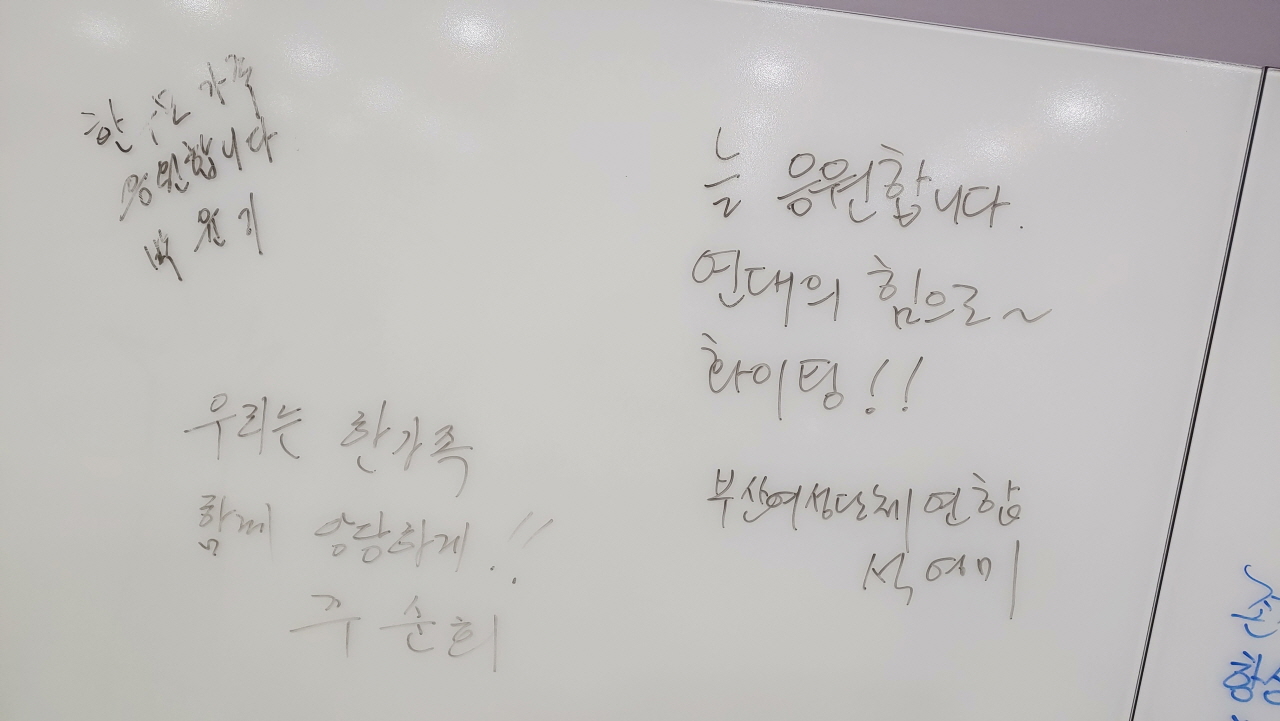 한 가족
응원합니다
박원기
우리는 한가족
함께 당하게!!
주순희
늘 응원합니다.
연대의 힘으로~
화이팅!!
부산여성단체연합
석영미